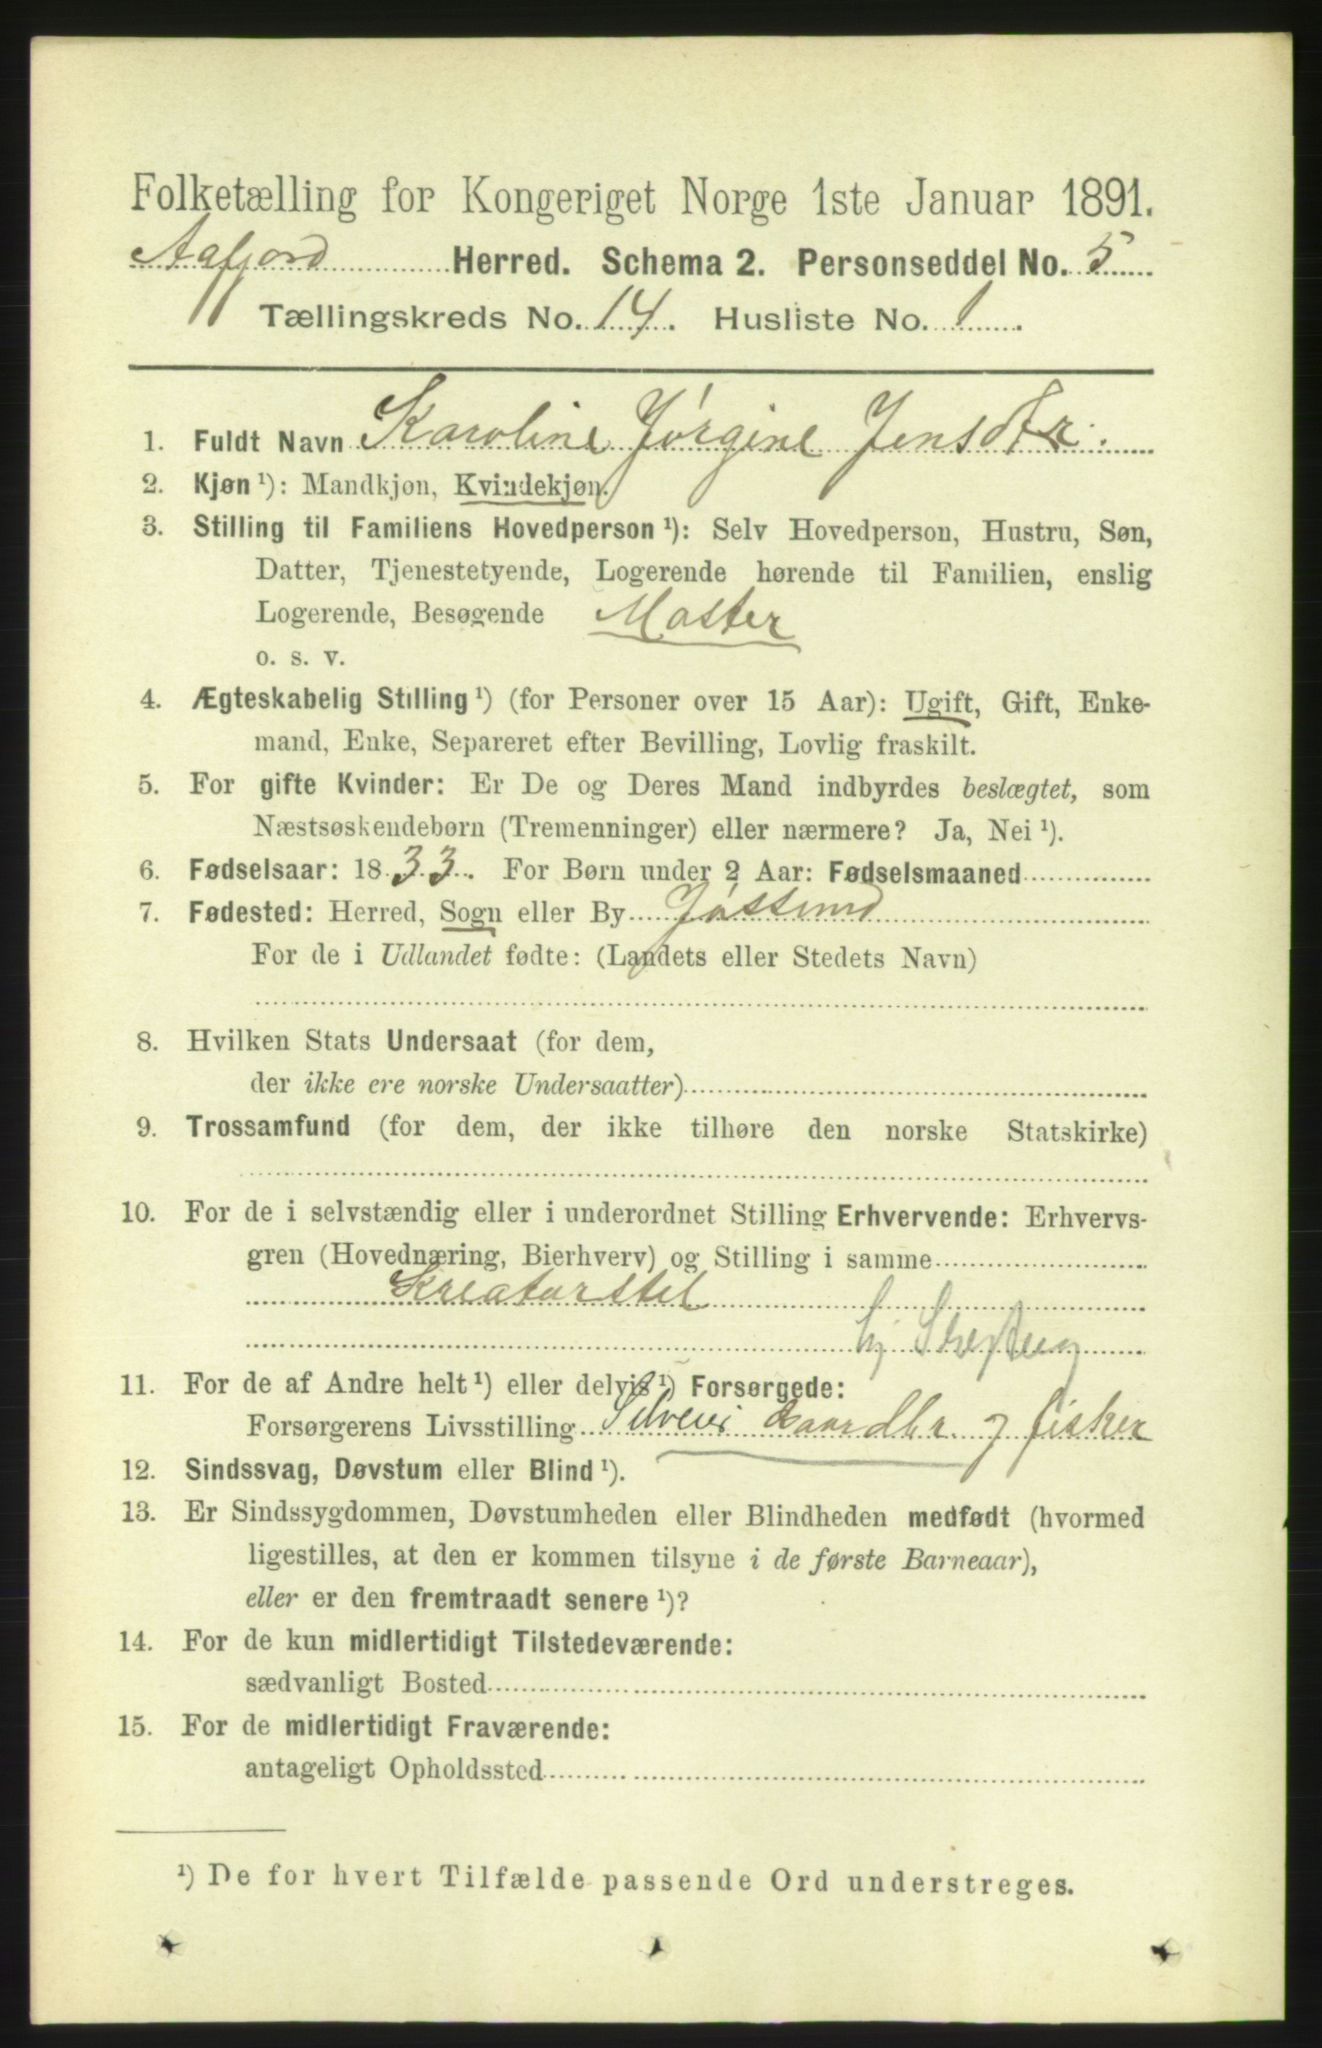 Folketælling for Kongeriget Norge 1ste Januar 1891.
Aafjord Herred. Schema 2. Personseddel No. 5
Tællingskreds No. 14. Husliste No. 1.
1. Fuldt Navn Karoline Jørgine Jensdtr.
2. Kjøn ¹): Mandkjøn, Kvindekjøn.
3. Stilling til Familiens Hovedperson ¹): Selv Hovedperson, Hustru, Søn,
Datter, Tjenestetyende, Logerende hørende til Familien, enslig
Logerende, Besøgende Moster
o. s. v.
4. Ægteskabelig Stilling ¹) (for Personer over 15 Aar): Ugift, Gift, Enke-
mand, Enke, Separeret efter Bevilling, Lovlig fraskilt.
5. For gifte Kvinder: Er De og Deres Mand indbyrdes beslægtet, som
Næstsøskendebørn (Tremenninger) eller nærmere? Ja, Nei ¹).
6. Fødselsaar: 1833. For Børn under 2 Aar: Fødselsmaaned
7. Fødested: Herred, Sogn eller By Jøssund
For de i Udlandet fødte: (Landets eller Stedets Navn)
8. Hvilken Stats Undersaat (for dem,
der ikke ere norske Undersaatter)
9. Trossamfund (for dem, der ikke tilhøre den norske Statskirke)
10. For de i selvstændig eller i underordnet Stilling Erhvervende: Erhvervs-
gren (Hovednæring, Bierhverv) og Stilling i samme
Kreaturstel
11. For de af Andre helt ¹) eller delvis ¹) Forsørgede:
Forsørgerens Livsstilling Selveier Gaardbr. og fisker
12. Sindssvag, Døvstum eller Blind ¹).
13. Er Sindssygdommen, Døvstumheden eller Blindheden medfødt (hvormed
ligestilles, at den er kommen tilsyne i de første Barneaar),
eller er den fremtraadt senere ¹)?
14. For de kun midlertidigt Tilstedeværende:
sædvanligt Bosted
15. For de midlertidigt Fraværende:
antageligt Opholdssted
¹) De for hvert Tilfælde passende Ord understreges.